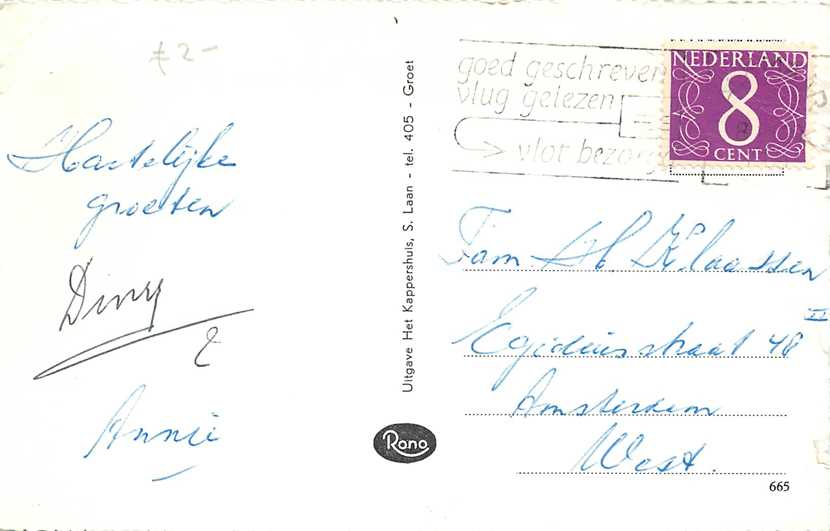 £ 2-
Hartelijke
groeten
Diny
&
Annie
Uitgave Het Kappershuis, S. Laan - tel. 405 - Groet
Rono
goed geschreven
vlug gelezen
vlot bezorg
NEDERLAND
8
CENT
Fam H Klaassen
Egidiusstraat 48 II
Amsterdam
West.
665